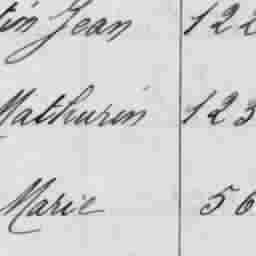 tin Jean 122
Mathurin 123
Marie 56